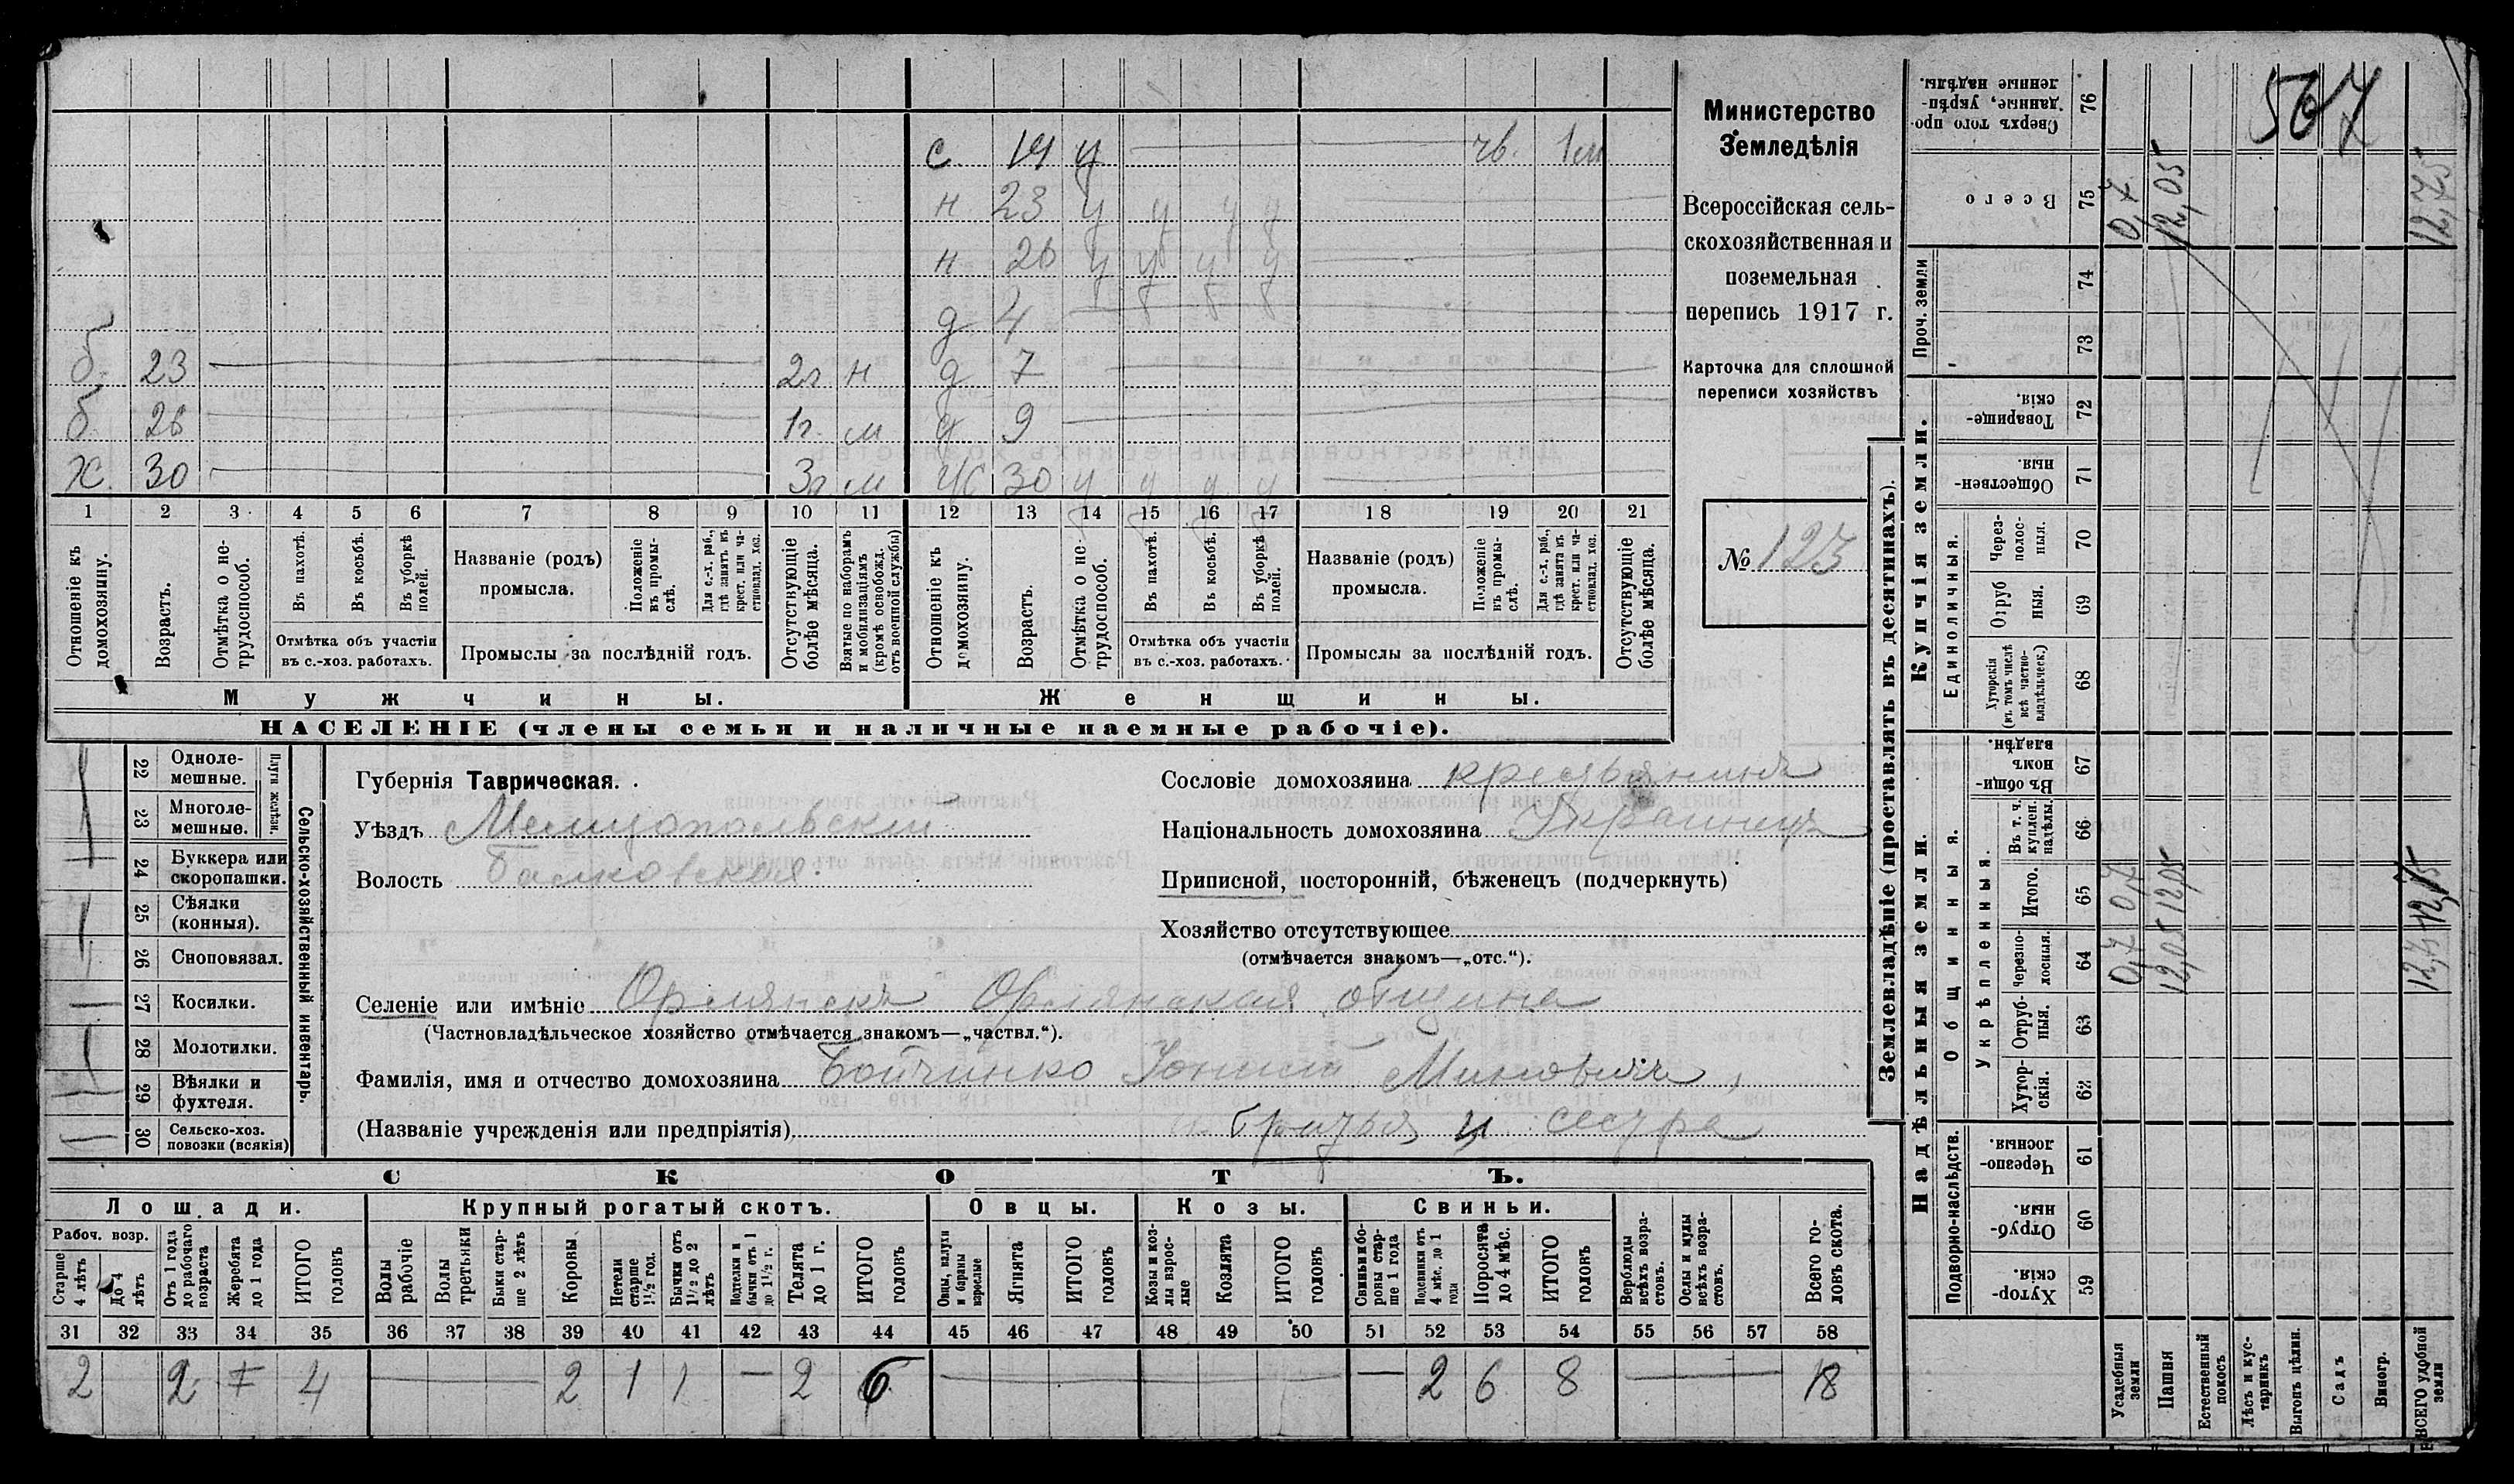 с. 14 у чв. 1м
н 23 у у у у
н 26 у у у у
д 4
б. 23 2г н д 7
б. 26 1г. м д 9
Х. 30 3г м ж 30 у у у у
1 2 3 4 5 6 7 8 9 10 11 12 13 14 15 16 17 18 19 20 21
Отношеніе къ домохозяину.
Возрастъ.
Отмѣтка о не-трудоспособ.
Въ пахотѣ.
Въ косьбѣ.
Въ уборкѣ полей.
Отмѣтка объ участіи
въ с.-хоз. работахъ.
Названіе (родъ)
промысла.
Положеніе въ промы-слѣ.
Для с.-х. раб., гдѣ занятъ въ крест. или ча-стновлад. хоз.
Промыслы за послѣдній годъ.
Отсутствующіе болѣе мѣсяца.
Взятые по наборамъ и мобилизаціямъ (кромѣ освобожд. отъ военной службы)
Отношеніе къ домохозяину.
Возрастъ.
Отмѣтка о не-трудоспособ.
Въ пахотѣ.
Въ косьбѣ.
Въ уборкѣ полей.
Отмѣтка объ участіи
въ с.-хоз. работахъ.
Названіе (родъ)
промысла.
Положеніе въ промы-слѣ.
Для с.-х. раб., гдѣ занятъ въ крест. или ча-стновлад. хоз.
Промыслы за послѣдній годъ.
Отсутствующіе болѣе мѣсяца.
Мужчины. Женщины.
НАСЕЛЕНІЕ (члены семьи и наличные наемные рабочіе).
Министерство
Земледѣлія
Всероссійская сель-
скохозяйственная и
поземельная
перепись 1917 г.
Карточка для сплошной
переписи хозяйствъ
№ 123
22 Одноле-мешные.
23 Многоле-мешные.
Плуги желѣзн.
24 Буккера или скоропашки.
25 Сѣялки (конныя).
26 Сноповязал.
27 Косилки.
28 Молотилки.
29 Вѣялки и фухтеля.
30 Сельско-хоз. повозки (всякія)
Сельско-хозяйственный инвентарь.
Губернія Таврическая.
Уѣздъ Мелитопольскій
Волость Балковская
Сословіе домохозяина крестьянинъ
Національность домохозяина Украинец
Приписной, посторонній, бѣженецъ (подчеркнуть)
Хозяйство отсутствующее
(отмѣчается знакомъ—„отс.“).
Селеніе или имѣніе Орлянскъ Орлянская община
(Частновладѣльческое хозяйство отмѣчается знакомъ—„частвл.“).
Фамилія, имя и отчество домохозяина Бойченко
(Названіе учрежденія или предпріятія) и братья и сестра
СКОТЪ.
Лошади. Крупный рогатый скотъ. Овцы. Козы. Свиньи.
Рабоч. возр.
Старше 4 лѣтъ
До 4 лѣтъ
Отъ 1 года до рабочаго возраста
Жеребята до 1 года
ИТОГО головъ
Волы рабочіе
Волы третьяки
Быки стар-ше 2 лѣтъ
Коровы
Нетели старше 1½ год.
Бычки отъ 1½ до 2 лѣтъ
Подтелки и бычки отъ 1 до 1½ г.
Телята до 1 г.
ИТОГО головъ
Овцы, валухи и бараны взрослые
Ягнята
ИТОГО головъ
Козы и коз-лы взрос-лые
Козлята
ИТОГО головъ
Свиньи и бо-ровы стар-ше 1 года
Подсвинки отъ 4 мѣс. до 1 года
Поросята до 4 мѣс.
ИТОГО головъ
Верблюды всѣхъ возра-стовъ.
Ослы и мулы всѣхъ возра-стовъ.
Всего го-ловъ скота.
31 32 33 34 35 36 37 38 39 40 41 42 43 44 45 46 47 48 49 50 51 52 53 54 55 56 57 58
2 2 4 2 1 1 — 2 6 — 2 6 8 — 18
Землевладѣніе (проставлять въ десятинахъ).
Купчія земли.
Надѣльныя земли.
507
Сверхъ того про-данные, укрѣп-ленные надѣлы. 76
Всего 75 0,7 12,05 12,75
Проч. земли 74
73
Товарище-скія. 72
Обществен-ныя. 71
Единоличныя.
Через-полос-ныя. 70
Отруб ныя. 69
Хуторскія (въ томъ числѣ всѣ частно-владѣльческ.) 68
Общинныя.
Укрѣпленныя.
Въ общи-номъ владѣн. 67
Въ т. ч. куплен. надѣлы. 66
Итого. 65 0,7 12,05 12,75
Черезпо-лосныя. 64 0,7 12,05 12,75
Отруб-ныя. 63
Хутор-скія. 62
Подворно-наслѣдств.
Черезпо-лосныя. 61
Отруб-ныя. 60
Хутор-скія. 59
Усадебныя земли
Пашня
Естественный покосъ
Лѣсъ и кус-тарникъ
Выгонъ цѣлин.
Садъ
Виногр.
ВСЕГО удобной земли